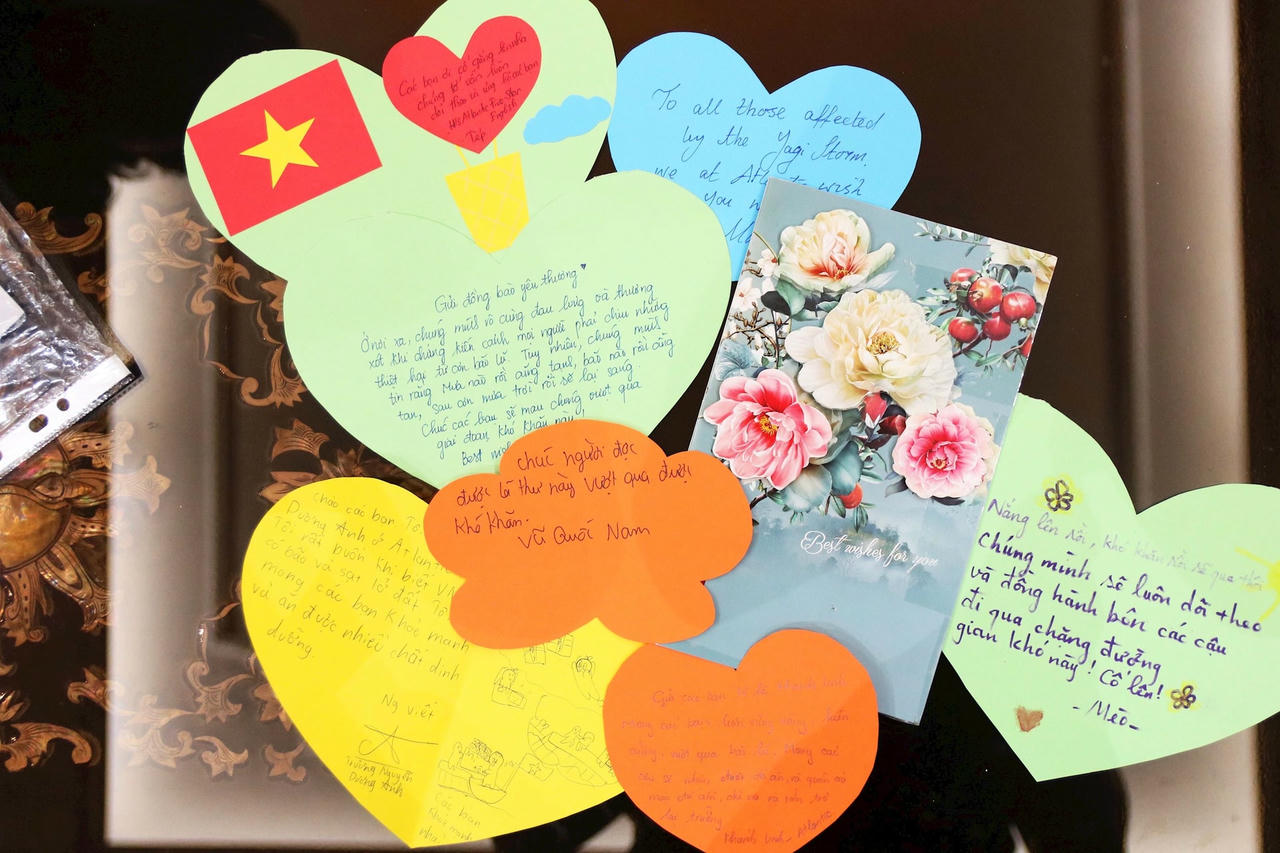 Các bạn ơi cố gắng lên nha
chúng tớ vẫn luôn
dõi theo và ủng hộ các bạn
English
Tép
To all those affected
by the Yagi Storm.
we at wish
you
Gửi đồng bào yêu thương
Ở nơi xa, chúng mình vô cùng đau lòng và thương
xót khi chứng kiến cảnh mọi người phải chịu những
thiệt hại từ cơn bão lũ. Tuy nhiên, chúng mình
tin rằng Mưa nào rồi cũng tạnh, bão nào rồi cũng
tan, sau cơn mưa trời rồi sẽ lại sáng
Chúc các bạn sẽ mau chóng vượt qua
giai đoạn khó khăn này.
Best
chúc người đọc
được lá thư này vượt qua được
khó khăn.
Vũ Quốc Nam
Best wishes for you
Nắng lên rồi, khó khăn rồi sẽ qua thôi
Chúng mình sẽ luôn dõi theo
và đồng hành bên các cậu
đi qua chặng đường
gian khó này! Cố lên!
- Mèo -
Chào các bạn. Tớ
Dương Anh ở Atlan
Tôi rất buồn khi biết VN
có bão và sạt lở đất. Tớ
mong các bạn khoẻ mạnh
và ăn được nhiều chất dinh
dưỡng
Ng việt
Trương Nguyễn
Dương Anh
Các bạn
khoẻ mạnh
nha!
Gửi các bạn
mong các bạn luôn vững lòng, kiên
cường vượt qua bão lũ. Mong các
lại trường
Khánh Linh - Atlantic